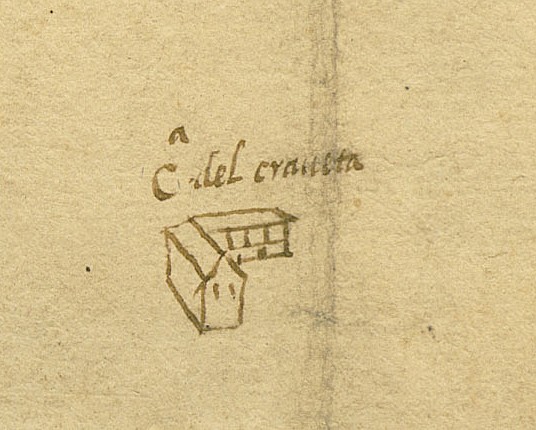 Cª del craueta